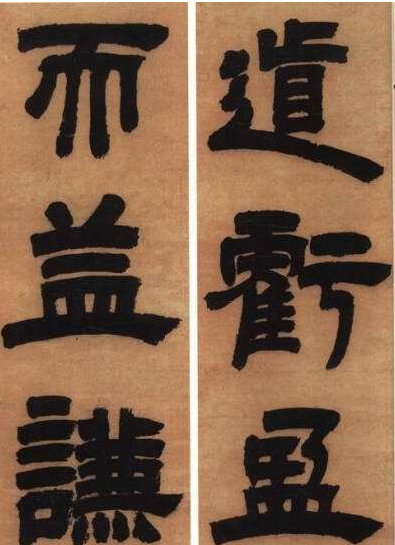 道虧盈
而益謙